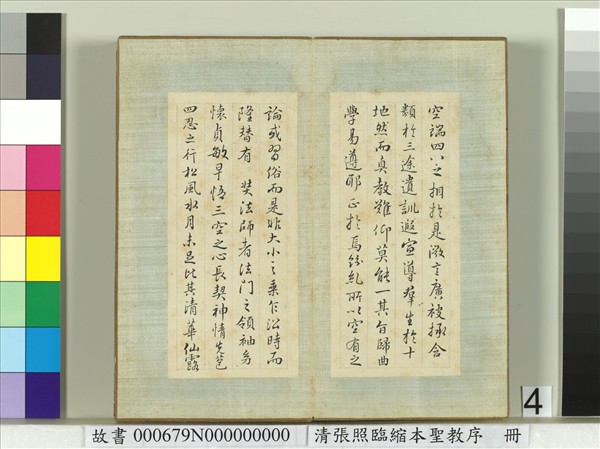 空端四八之相於是微言廣被拯含
類於三途遺訓遐宣導羣生於十
地然而真教難仰莫能一其旨歸曲
學易遵邪正於焉紛糺所以空有之
論或習俗而是非大小之乘乍沿時而
隆替有 奘法師者法門之領袖
懷貞敏早悟三空之心長契神情先苞
四忍之行松風水月未足比其清華仙露
4
故書 000679N000000000 清張照臨縮本聖教序 冊